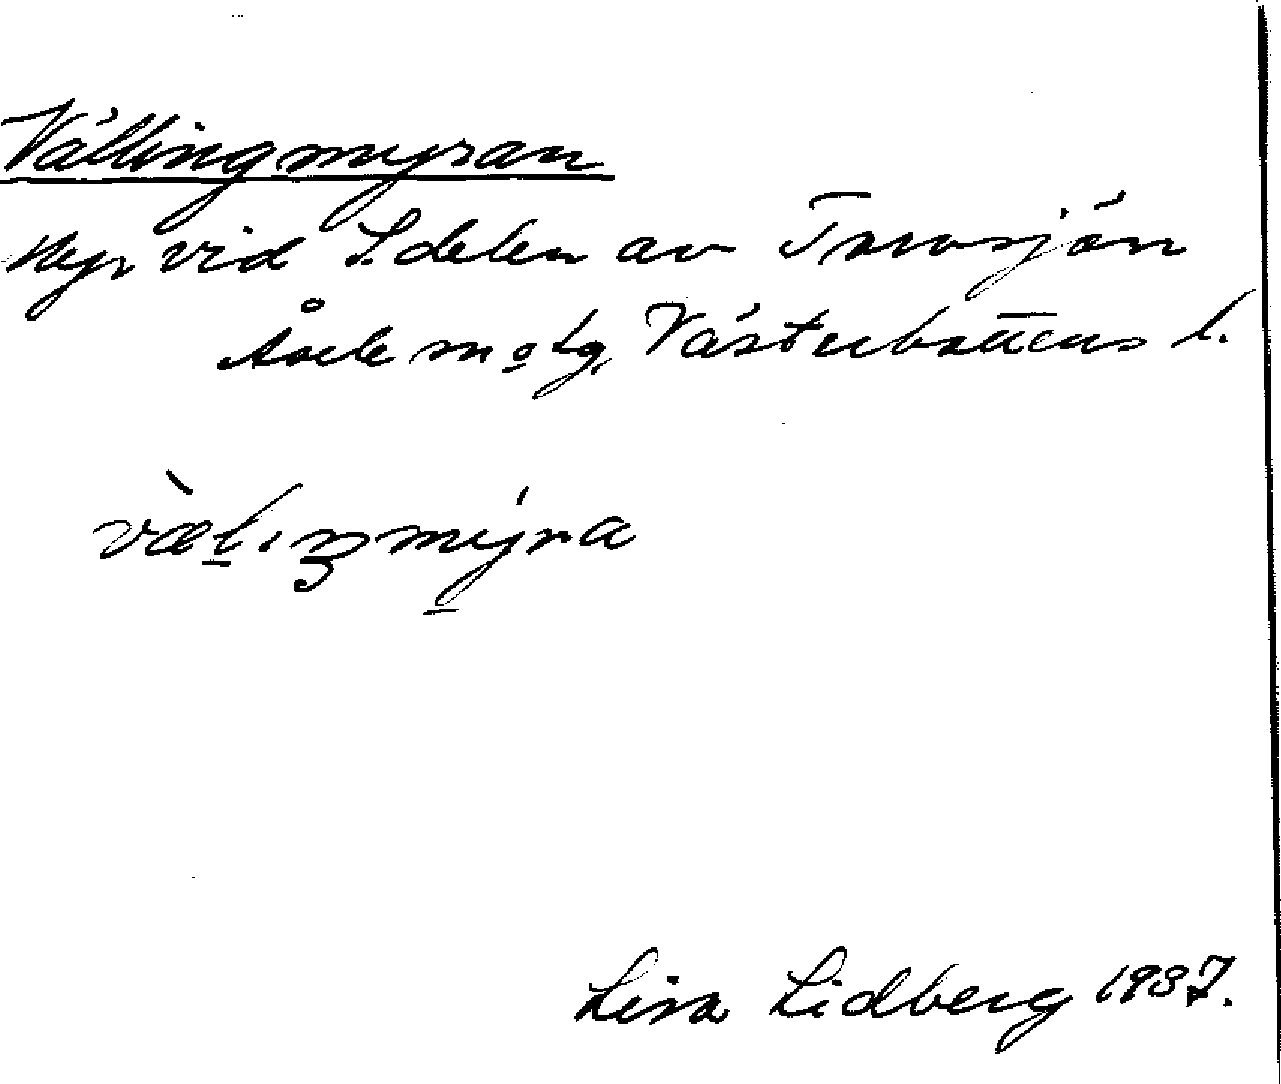 Vällingmyran
Myr vid S.delen av Tvärsjön
Åsele m o tg, Västerbottens l.
væl.ıŋmy̲ra
Lisa Lidberg 1937.